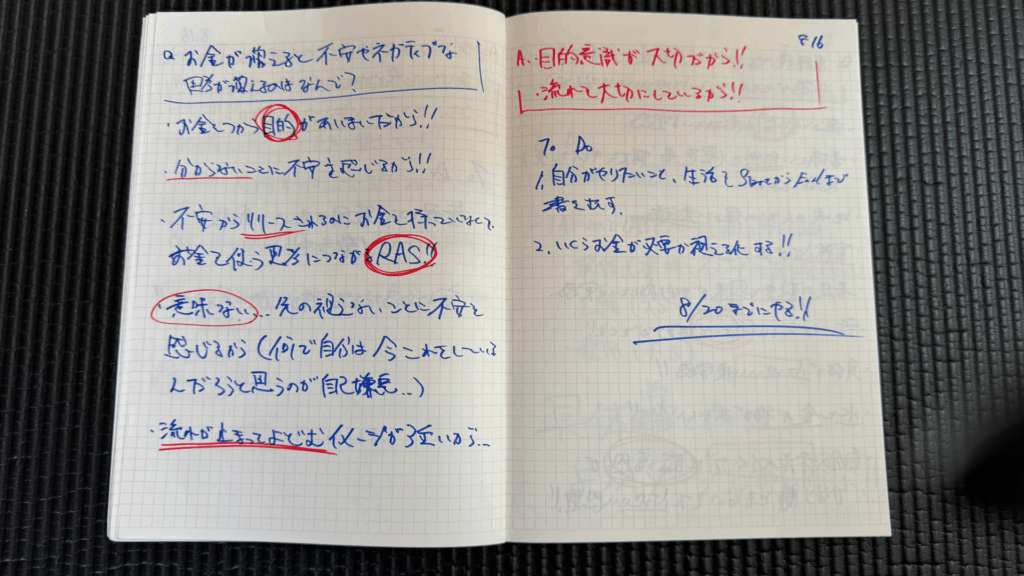 Q お金が増えると不安やネガティブな
思考が増えるのはなんで?
・お金つかう目的があいまいだから!!
・分からないことに不安を感じるから!!
・不安からリリースされるのにお金を持っていなくて、
お金を使う思考につながるRAS!!
・意味ない… 先の視えないことに不安を
感じるから(何で自分は今これをしている
んだろうと思うのが自己嫌悪…)
・流れが止まってよどむイメージが強いから…
8/16
A. ・目的意識が大切だから!!
・流れを大切にしているから!!
To Do
1. 自分がやりたいこと、生活をStartからEndまで
書き出す。
2. いくらお金が必要か視える化する!!
8/20までにやる!!